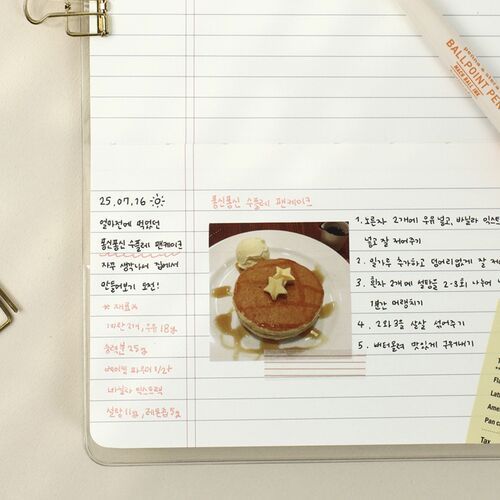 penna & stora
BALLPOINT PEN
MACH BALL INK
25.07.16
얼마전에 먹었던
퐁신퐁신 수플레 팬케이크
자꾸 생각나서 집에서
만들어보기 도전!
* 재료 *
계란 2개, 우유 18g
중력분 25g
베이킹 파우더 1/2t
바닐라 익스트랙
설탕 11g, 레몬즙 5g
퐁신퐁신 수플레 팬케이크
1. 노른자 2개에 우유 넣고, 바닐라 익스트
넣고 잘 저어주기
2. 밀가루 추가하고 덩어리없게 잘 저
3. 흰자 2개에 설탕을 2-3회 나눠 넣
1분간 머랭치기
4. 2와 3을 살살 섞어주기
5. 버터올려 맛있게 구워내기
Fl
Lat
Ame
Pan c
Tax